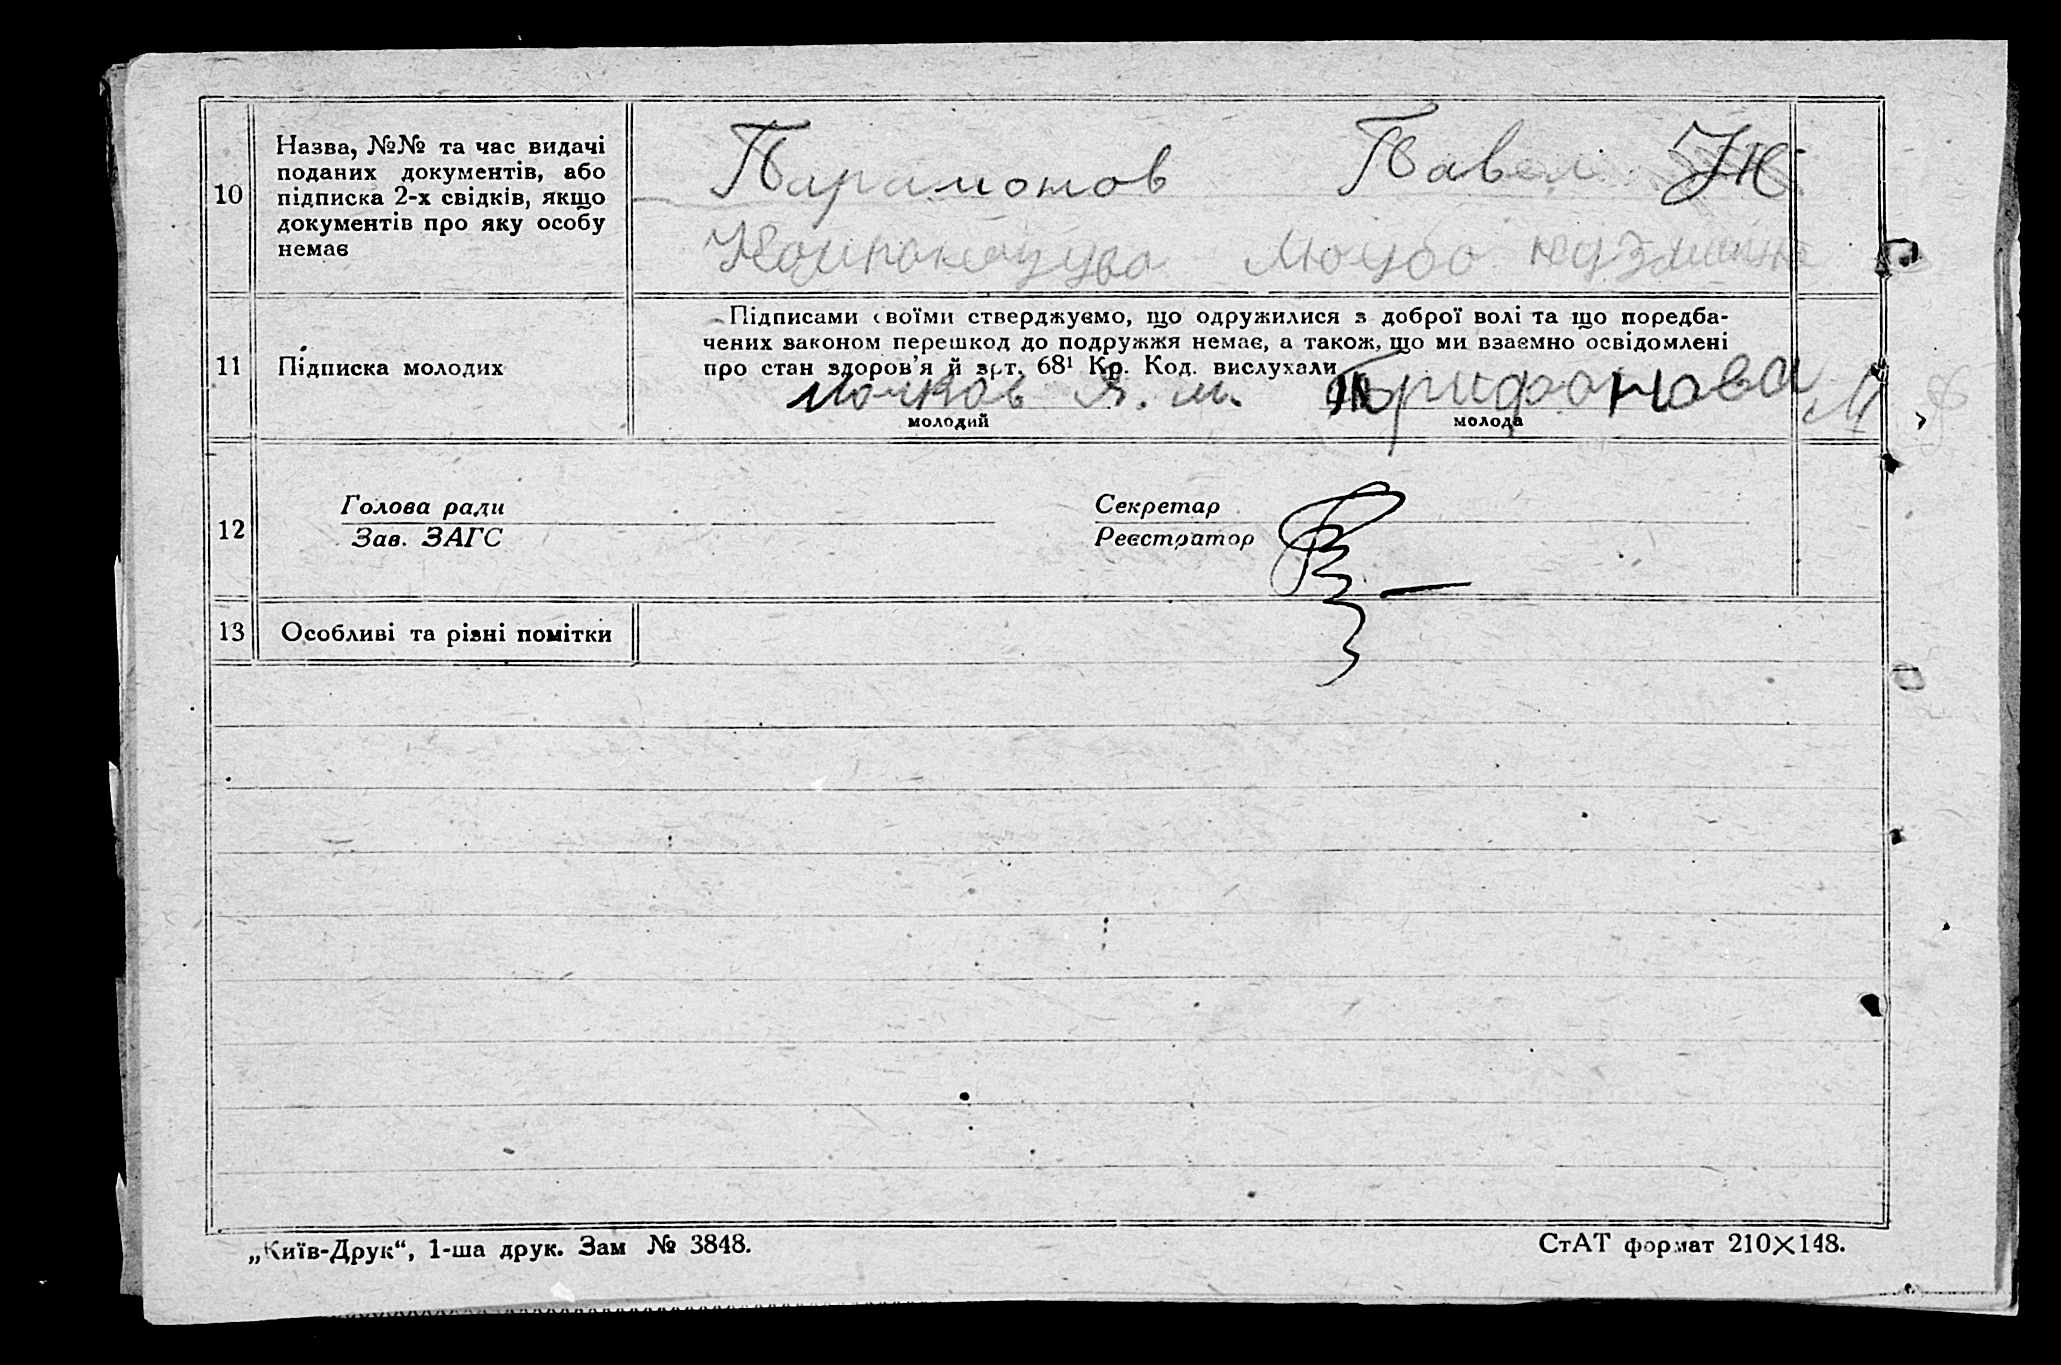 10
Назва, №№ та час видачі
поданих документів, або
підписка 2-х свідків, якщо
документів про яку особу
немає
Парамонов Павел
11
Підписка молодих
Підписами своїми стверджуємо, що одружилися з доброї волі та що поредба-
чених законом перешкод до подружжя немає, а також, що ми взаємно освідомлені
про стан здоров'я й арт. 68¹ Кр. Код. вислухали
Трифонова
молодий молода
12
Голова ради Секретар
Зав. ЗАГС Реєстратор
13
Особливі та різні помітки
„Київ-Друк“, 1-ша друк. Зам № 3848. СтАТ формат 210×148.